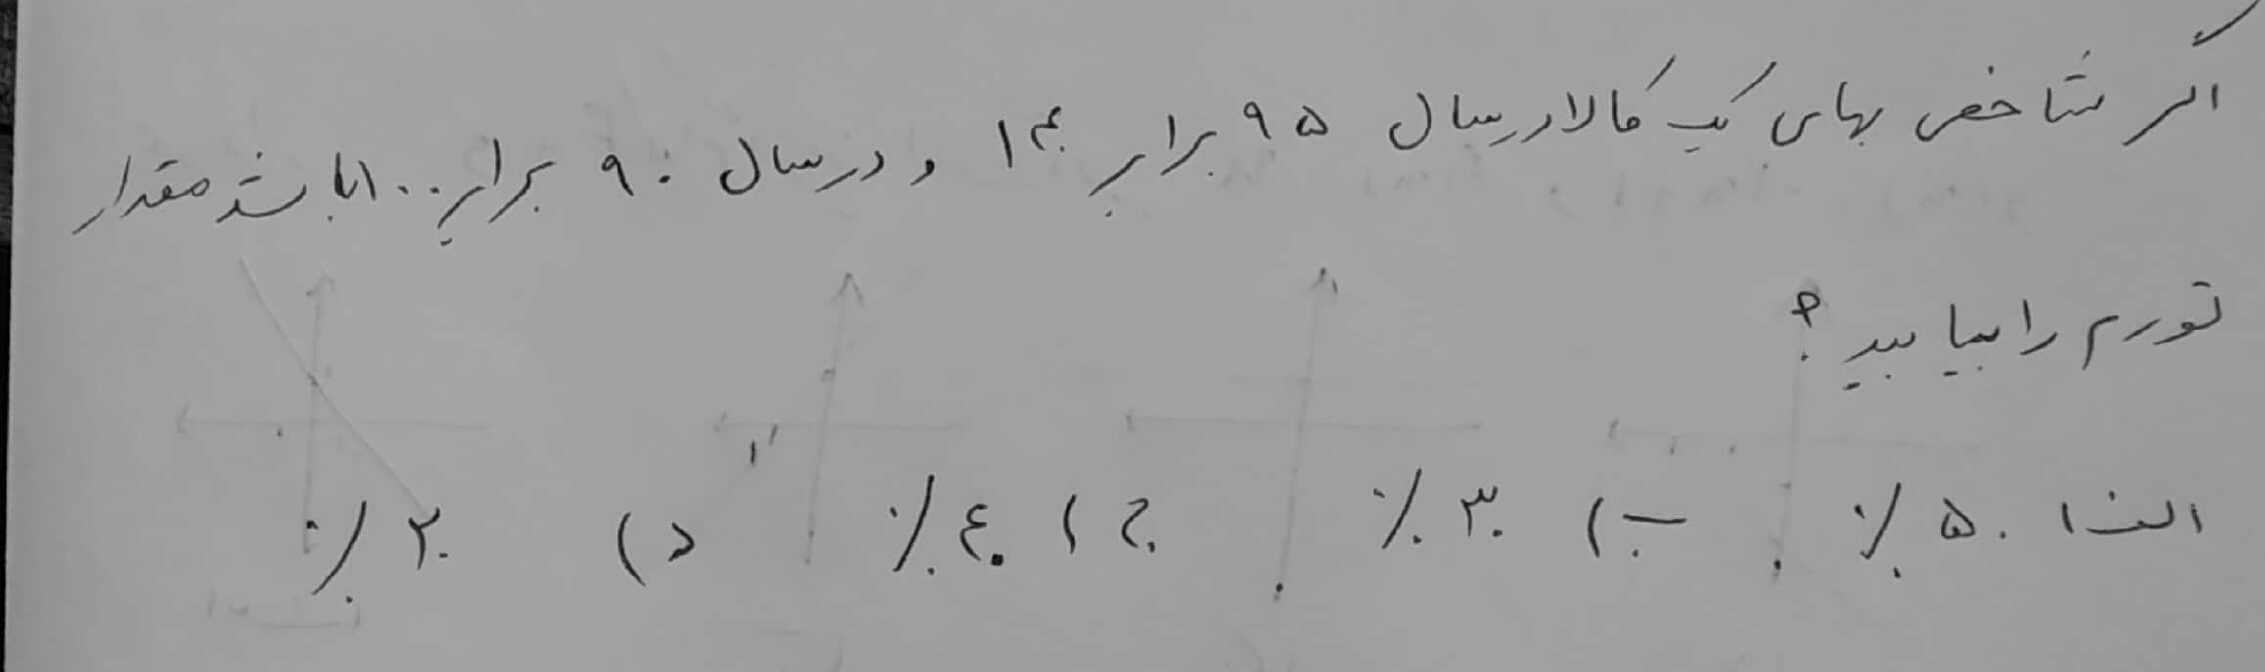 اگر شاخص بهای یک کالا در سال ۹۵ برابر ۱۴۰ و در سال ۹۰ برابر ۱۰۰ باشد مقدار
تورم را بیابید؟
الف) ۵۰٪ ب) ۳۰٪ ج) ۴۰٪ د) ۲۰٪